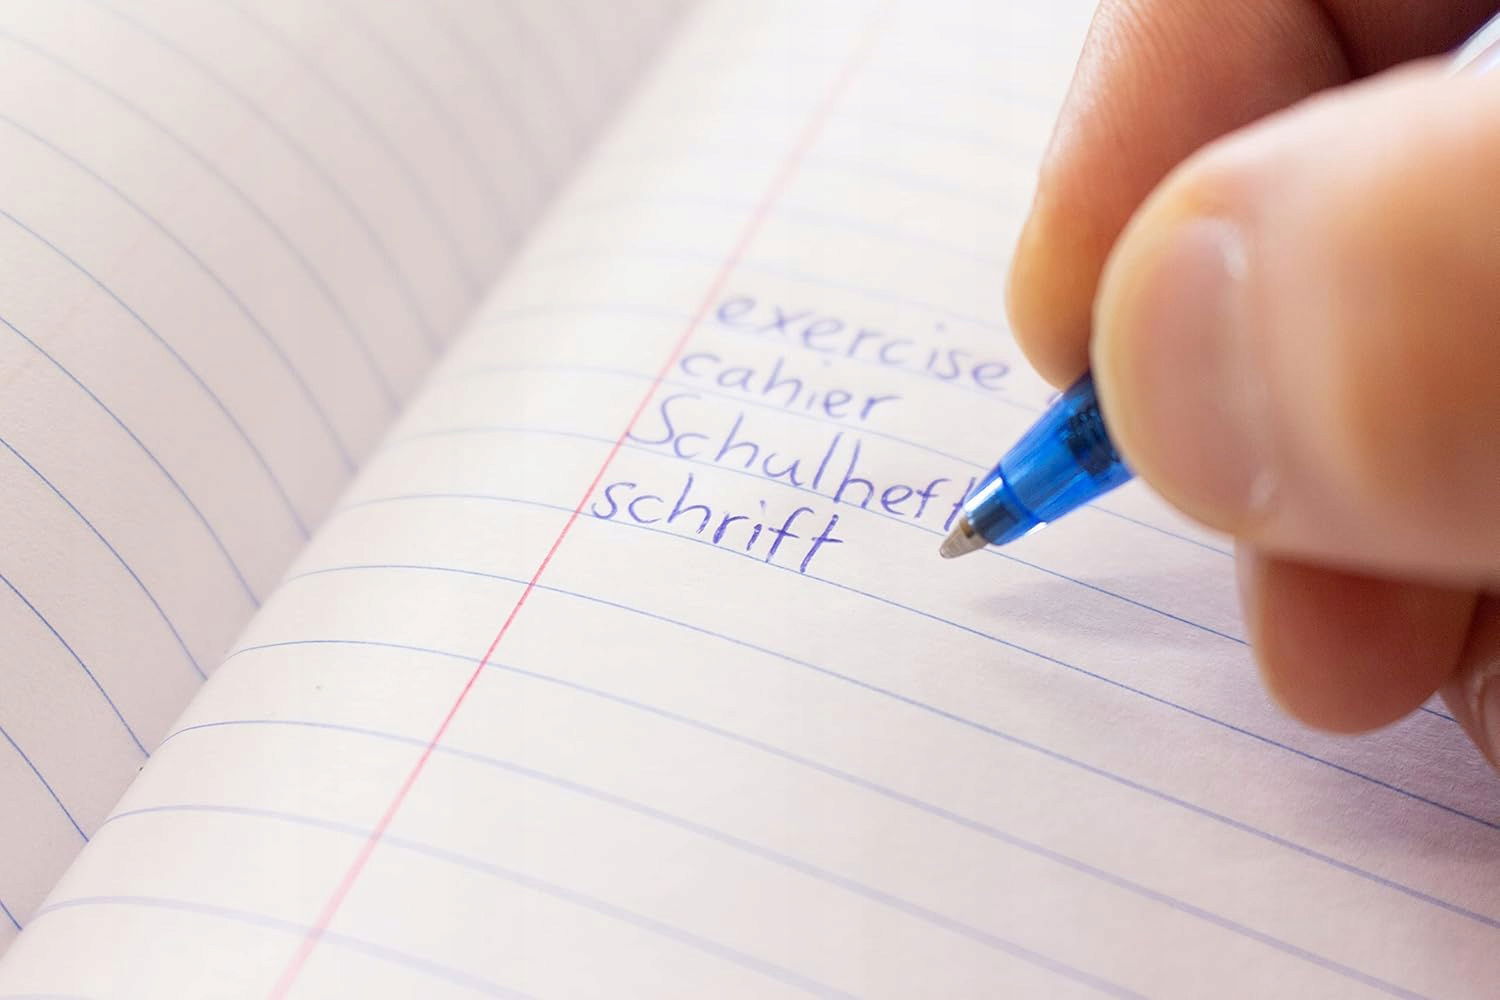 exercise
cahier
Schulheft
schrift